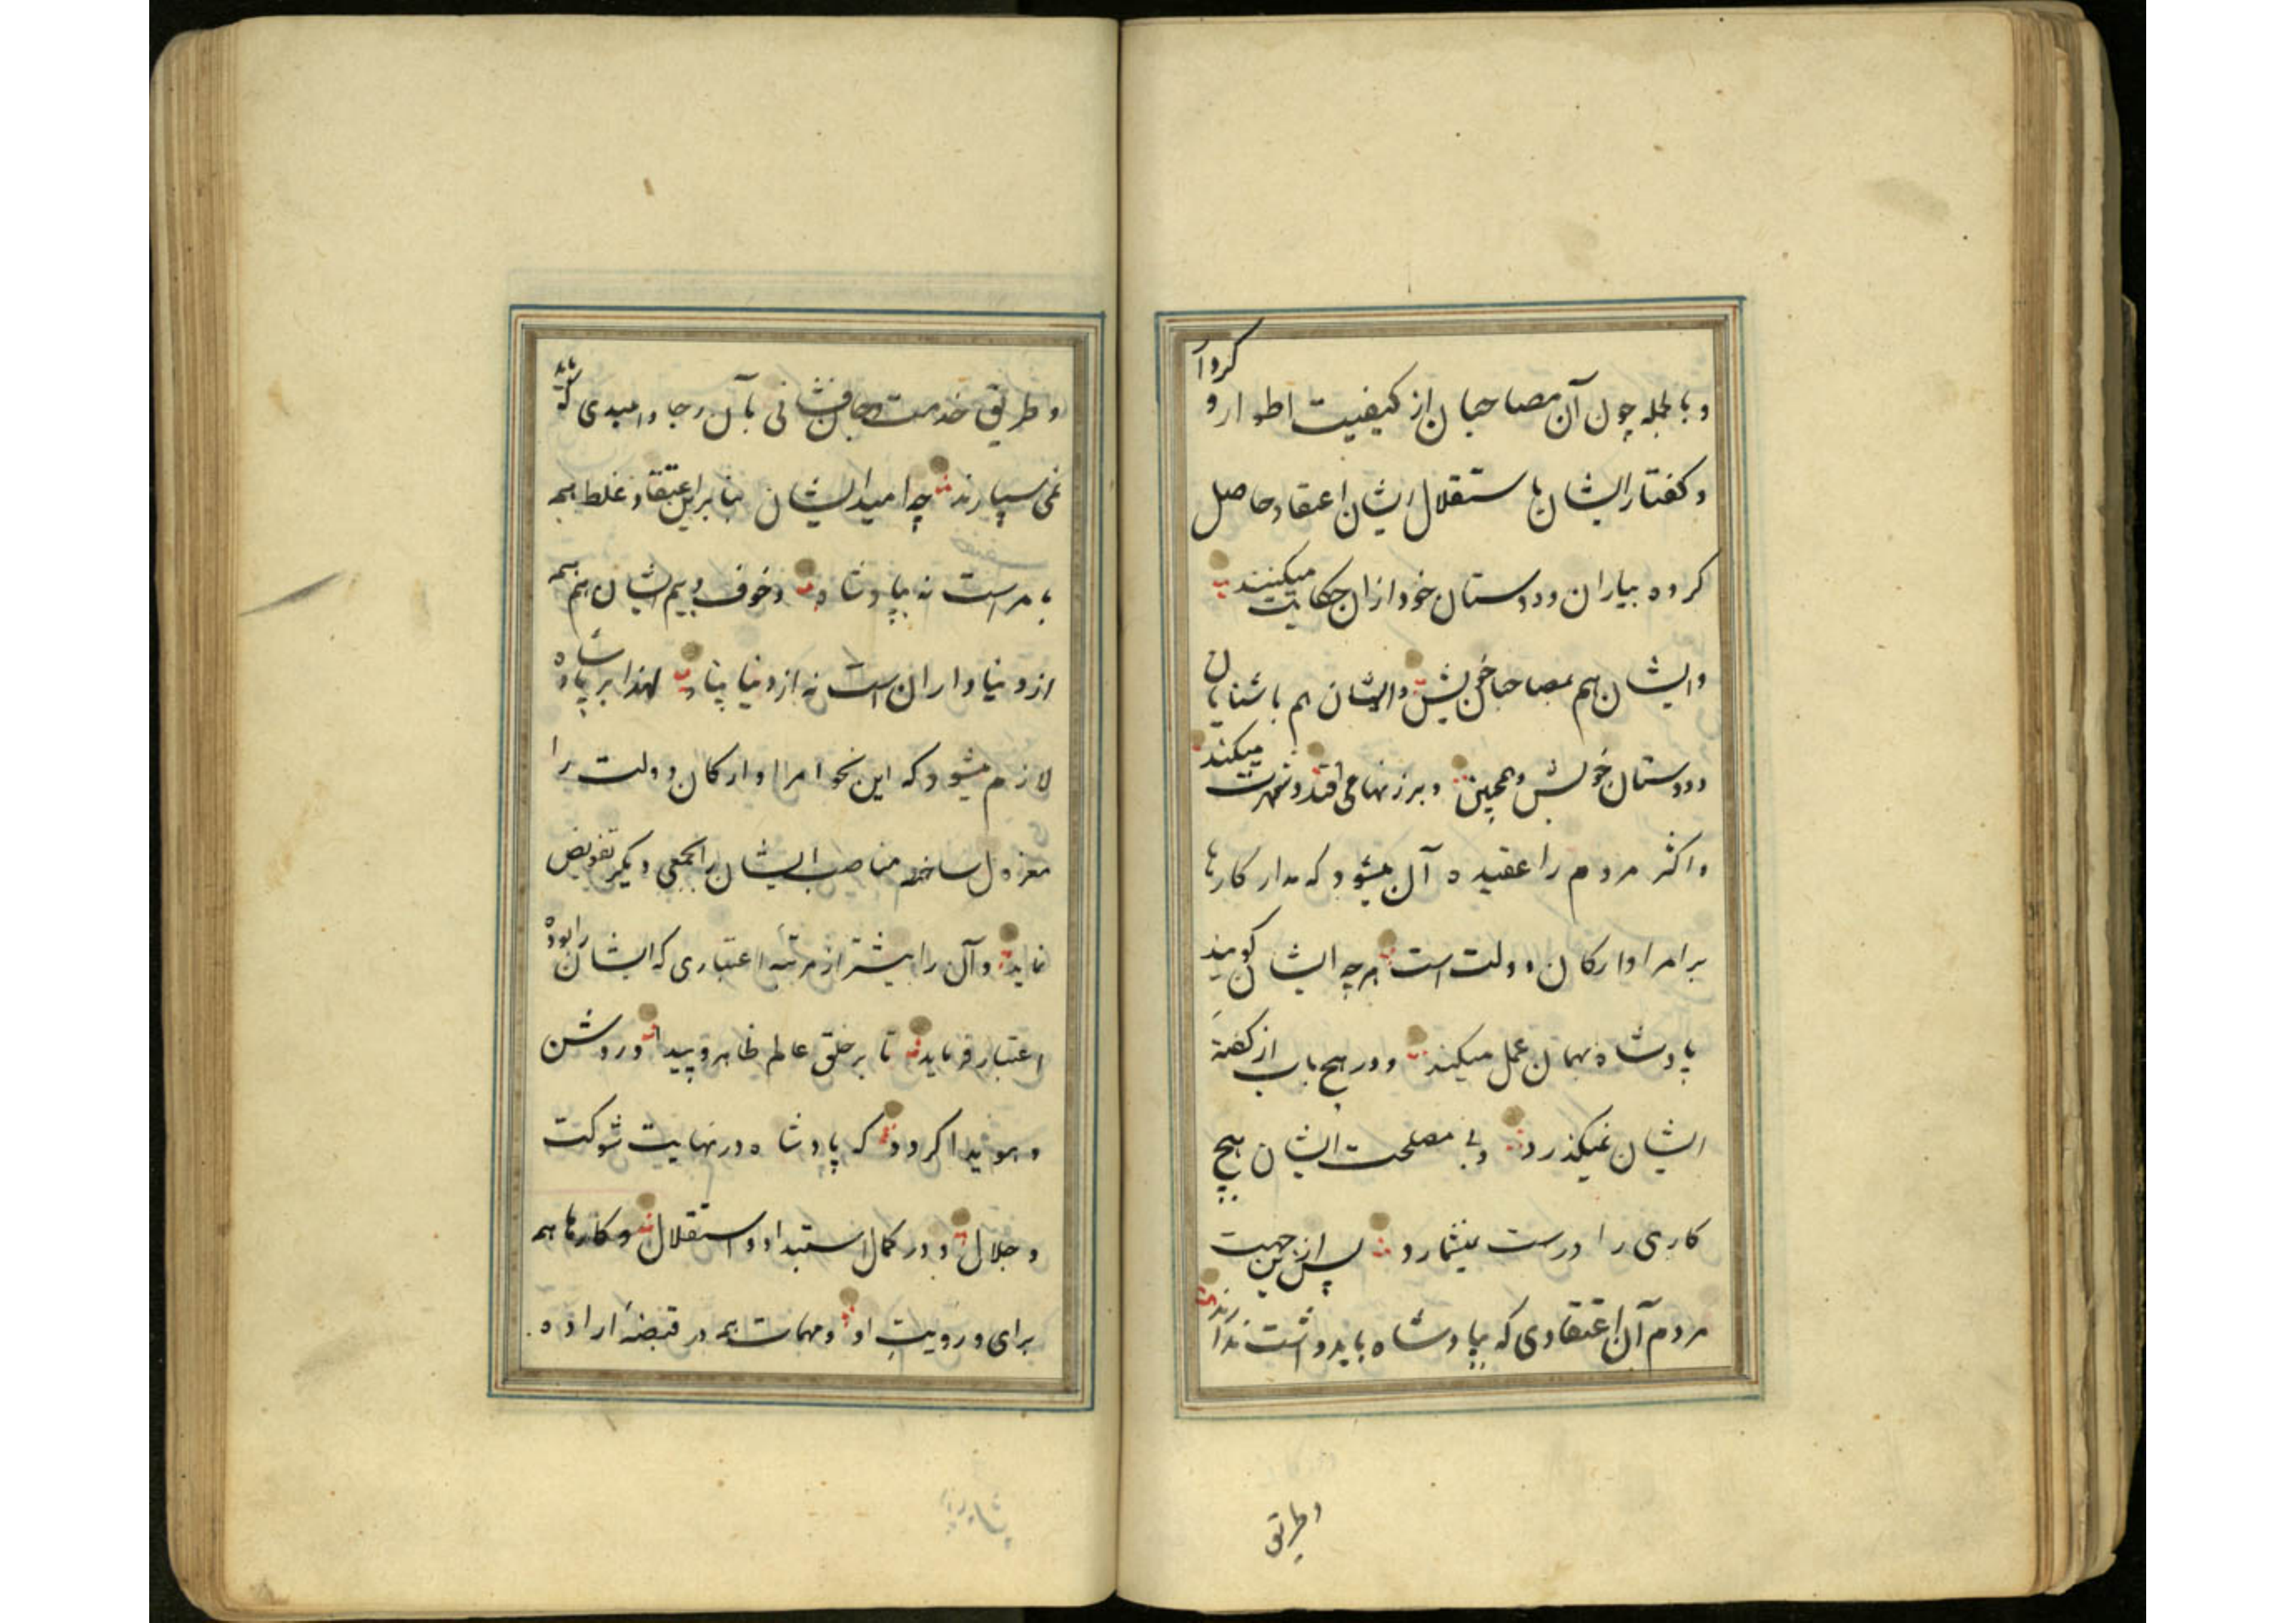 و بالجمله چون آن مصاحبان از کیفیت اطوار و کردار
و کفتار ایشان باستقلال ایشان اعتقاد حاصل
کرده بیاران و دوستان خود ازان حکایت میکنند
و ایشان هم بمصاحبان خویش و ایشان هم باشنایان
و دوستان خویش و همچنین و برزبانها می افتد و شهرت میکند
و اکثر مردم را عقیده آن میشود که مدار کارها
بر امرا و ارکان دولت است هرچه ایشان کویند
پادشاه بهمان عمل میکند و در هیچ باب از کفتهٔ
ایشان نمیکذرد و بی مصلحت ایشان هیچ
کاری را درست نمیشمارد پس ازین جهت
مردم آن اعتقادی که بپادشاه باید داشت ندارند
و طریق
و طریق خدمت و جانفشانی بآن رجا و امیدی که باید
نمی سپارند چه امید ایشان بنابراین اعتقاد غلط همه
بامراست نه بپادشاه و خوف و بیم ایشان هم همه
از دنیاداران است نه از دنیا پناه لهذا بر پادشاه
لازم میشود که این نحو امرا و ارکان دولت را
معزول ساخته مناصب ایشان را بجمعی دیکر تفویض
نماید و آن را بیشتر از مرتبهٔ اعتباری که ایشان را بوده
اعتبار فرماید تا بر خلق عالم ظاهر و پیدا و روشن
و هویدا کردد که پادشاه در نهایت شوکت
و جلال و در کمال استبداد و استقلال و کارها همه
برای و رویت او و مهمات همه در قبضهٔ اراده